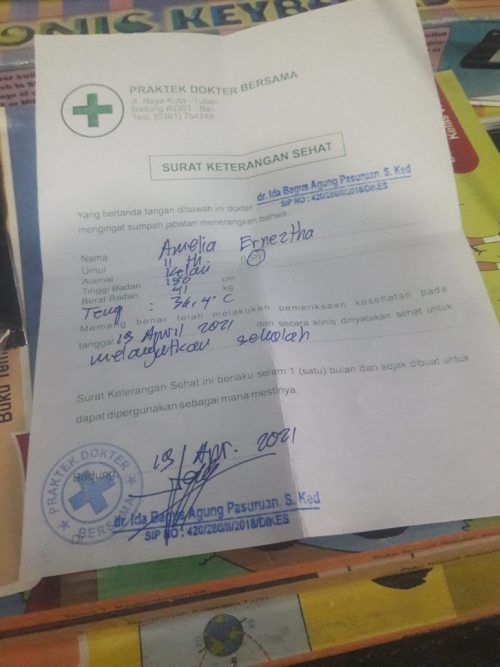 PRAKTEK DOKTER BERSAMA
Jl. Raya Kuta - Tuban
Badung 80361 - Bali
Telp. (0361) 754748
SURAT KETERANGAN SEHAT
Yang bertanda tangan dibawah ini dokter dr. Ida Bagus Agung Pasuruan, S. Ked
SIP NO : 420/280/II/2018/DIKES
mengingat sumpah jabatan menerangkan bahwa :
Nama Amelia Ernestha
Umur 11 th. (P)
Alamat Kelan
Tinggi Badan 150 cm
Berat Badan 41 kg
Temp : 36.4°C
Memang benar telah melakukan pemeriksaan kesehatan pada
tanggal 19 April 2021 dan secara klinis dinyatakan sehat untuk
melanjutkan sekolah
Surat Keterangan Sehat ini berlaku selam 1 (satu) bulan dari sejak dibuat untuk
dapat dipergunakan sebagai mana mestinya.
Badung, 19/Apr. 2021
PRAKTEK DOKTER
BERSAMA
dr. Ida Bagus Agung Pasuruan, S. Ked
SIP NO : 420/280/II/2018/DIKES